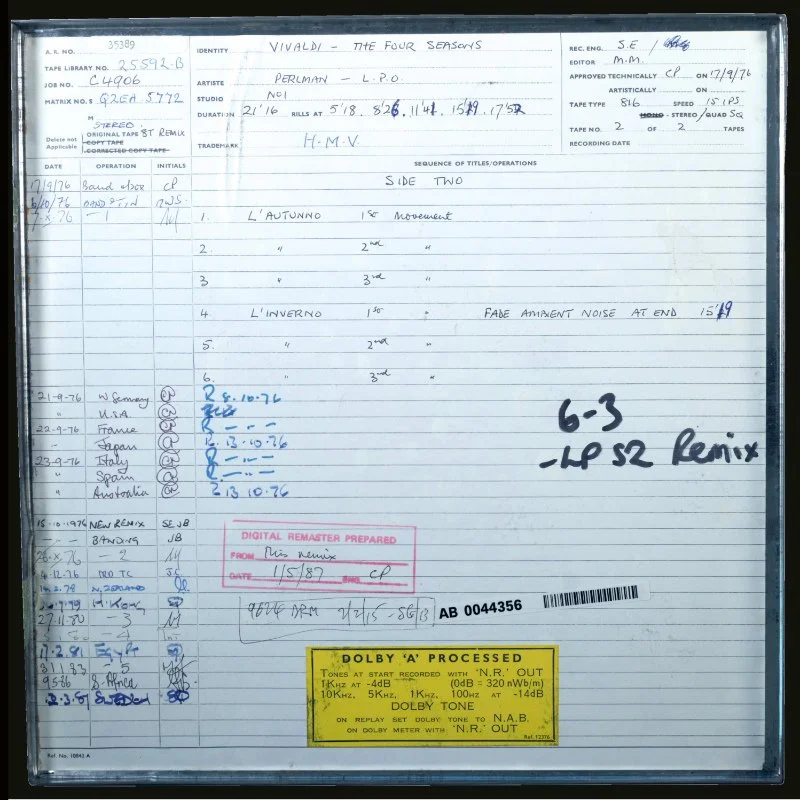 A.R. NO. 35389
TAPE LIBRARY NO. 25592-B
JOB NO. C4906
MATRIX NO.S G2EA 5772
M
STEREO
Delete not Applicable
ORIGINAL TAPE 8T REMIX
COPY TAPE
CORRECTED COPY TAPE
IDENTITY VIVALDI - THE FOUR SEASONS
ARTISTE PERLMAN - L.P.O.
STUDIO NO1
DURATION 21'16 RILLS AT 5'18, 8'26, 11'41, 15'19, 17'52
TRADEMARK H.M.V.
REC. ENG. S.E /
EDITOR M.M.
APPROVED TECHNICALLY CP ON 17/9/76
ARTISTICALLY ON
TAPE TYPE 816 SPEED 15 IPS
MONO - STEREO/QUAD SQ
TAPE NO. 2 OF 2 TAPES
RECORDING DATE
DATE OPERATION INITIALS
SEQUENCE OF TITLES/OPERATIONS
SIDE TWO
17/9/76 Band above CP
6/10/76
- 1
1. L'AUTUNNO 1st Movement
2. " 2nd "
3 " 3rd "
4. L'INVERNO 1st " FADE AMBIENT NOISE AT END 15'19
5. " 2nd "
6. " 3rd "
21-9-76 W Germany R 8.10.76
" U.S.A.
22-9-76 France R - - -
- Japan R. 13.10.76
23-9-76 Italy R - - -
" Spain R - - -
" Australia R 13 10.76
6-3
- LP S2 Remix
15-10-1976 NEW REMIX SE JB
- - - BANDING JB
26-X-76 - 2
4-12-76 TC J.C
N. ZEALAND
H. Kong
27.11.80 - 3
- 4
17.2.81 Egypt
31 1 83 - 5
9586 S. Africa
2.3.87 Sweden
DIGITAL REMASTER PREPARED
FROM This remix
DATE 1/5/87 ENG CP
9624 DRM 2/2/15 - SG/13
AB 0044356
DOLBY 'A' PROCESSED
TONES AT START RECORDED WITH 'N.R.' OUT
1KHZ AT -4dB (0dB = 320 nWb/m)
10KHZ, 5KHZ, 1KHZ, 100HZ AT -14dB
DOLBY TONE
ON REPLAY SET DOLBY TONE TO N.A.B.
ON DOLBY METER WITH 'N.R.' OUT
Ref. 12376
Ref. No. 10842 A